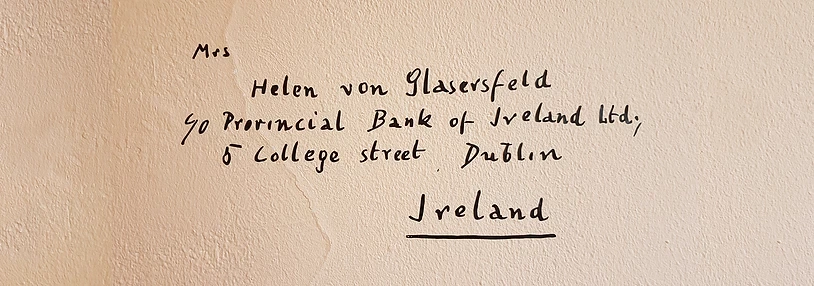 Mrs
Helen von Glasersfeld
c/o Provincial Bank of Ireland Ltd;
5 College street Dublin
Ireland